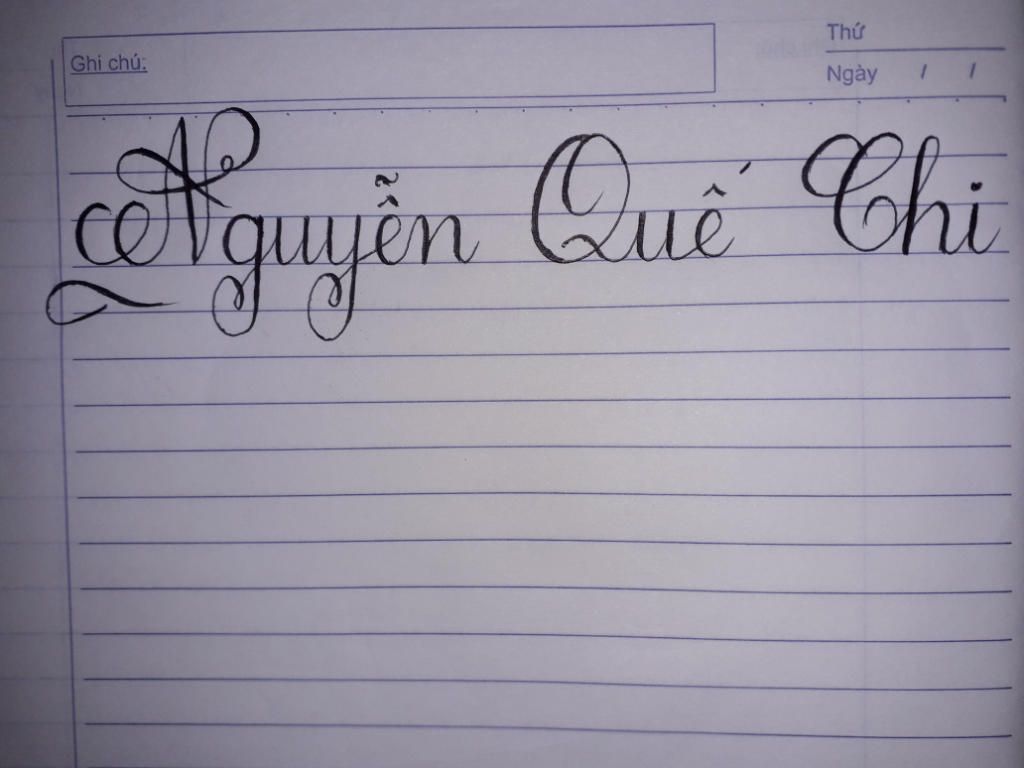 Ghi chú:
Thứ
Ngày / /
Nguyễn Quế Chi